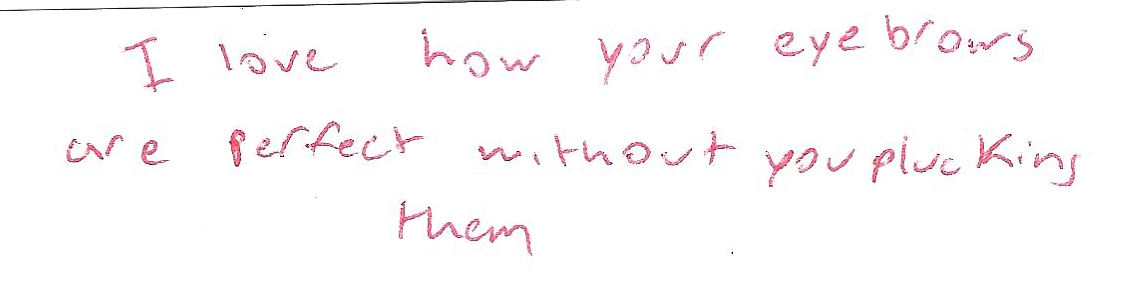 I love how your eyebrows
are perfect without you plucking
them